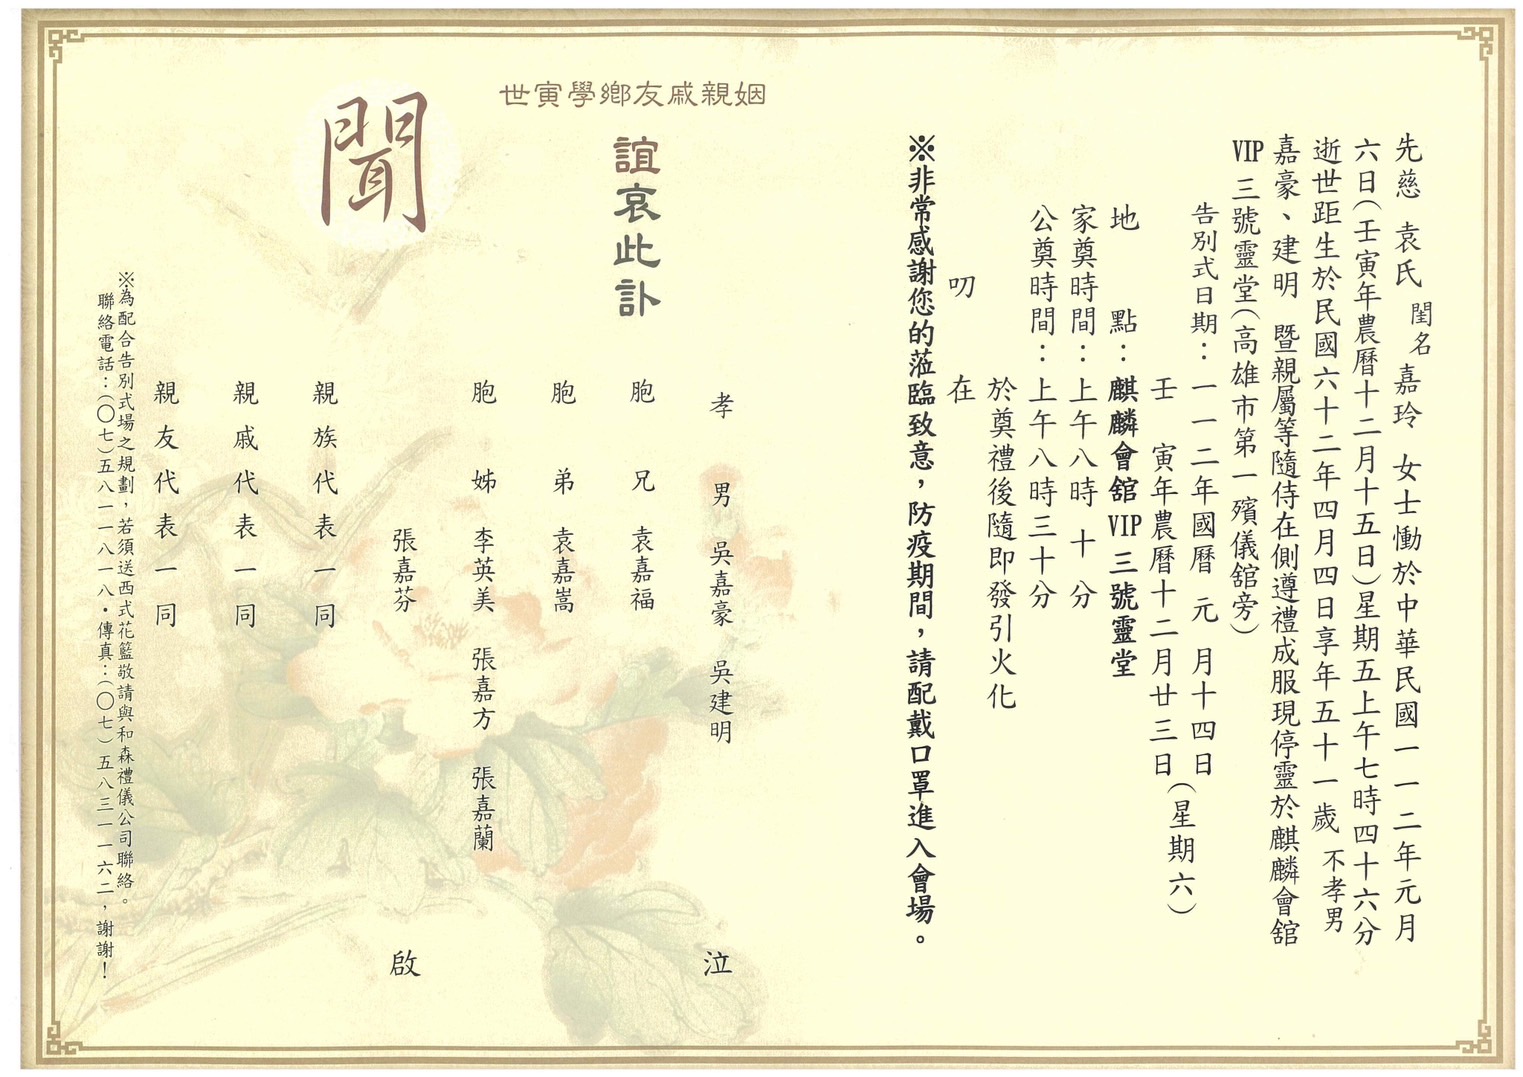 先慈 袁氏 閨名 嘉玲 女士慟於中華民國一一二年元月
六日(壬寅年農曆十二月十五日)星期五上午七時四十六分
逝世距生於民國六十二年四月四日享年五十一歲 不孝男
嘉豪、建明 暨親屬等隨侍在側遵禮成服現停靈於麒麟會舘
VIP 三號靈堂(高雄市第一殯儀舘旁)
告別式日期：一一二年國曆 元 月十四日
壬 寅年農曆十二月廿三日
(星期六)
地 點：麒麟會舘 VIP 三號靈堂
家奠時間：上午八時 十 分
公奠時間：上午八時三十分
於奠禮後隨即發引火化
叨 在
※非常感謝您的蒞臨致意，防疫期間，請配戴口罩進入會場。
姻親戚友鄉學寅世
誼哀此訃
聞
孝 男 吳嘉豪 吳建明 泣
胞 兄 袁嘉福
胞 弟 袁嘉嵩
胞 姊 李英美 張嘉方 張嘉蘭
張嘉芬 啟
親族代表一同
親戚代表一同
親友代表一同
※為配合告別式場之規劃，若須送西式花籃敬請與和森禮儀公司聯絡。
聯絡電話：(〇七)五八一一八一八•傳真：(〇七)五八三一一六二，謝謝！